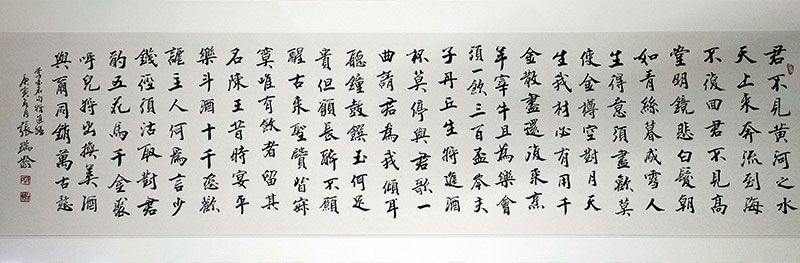 君不見黃河之水
天上来奔流到海
不復回君不見高
堂明鏡悲白髮朝
如青絲暮成雪人
生得意須盡歡莫
使金樽空對月天
生我材必有用千
金散盡還復来烹
羊宰牛且為樂會
須一飲三百盃岑夫
子丹丘生將進酒
杯莫停與君歌一
曲請君為我傾耳
聽鐘鼓饌玉何足
貴但願長醉不願
醒古来聖賢皆寂
寞唯有飲者留其
名陳王昔時宴平
樂斗酒十千恣歡
謔主人何為言少
錢徑須沽取對君
酌五花馬千金裘
呼兒將出換美酒
與爾同銷萬古愁
李白名句將進酒
庚寅 月張瑞齡